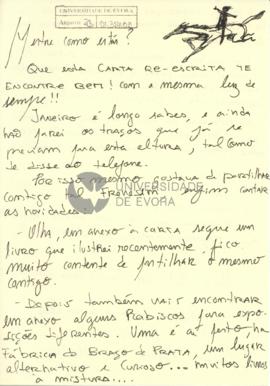 UNIVERSIDADE DE ÉVORA
Arquivo
Mestre como está?
Que esta carta re-escrita te
encontre bem! com a mesma luz de
sempre!!
Janeiro é longo sabes, e ainda
não parei os traços que já se
previam para esta altura, tal como
te disse ao telefone.
Por isso mesmo gostava de partilhar
contigo tal assim contar
as novidades:
- Olha, em anexo à carta segue um
livro que ilustrei recentemente, fico
muito contente de partilhar o mesmo
contigo.
- Depois também vais encontrar
em anexo alguns Rabiscos para expo-
sições diferentes. Uma é aí perto, na
Fábrica do Braço de Prata, um lugar
alternativo e curioso... muitos livros
à mistura...
UNIVERSIDADE
DE ÉVORA